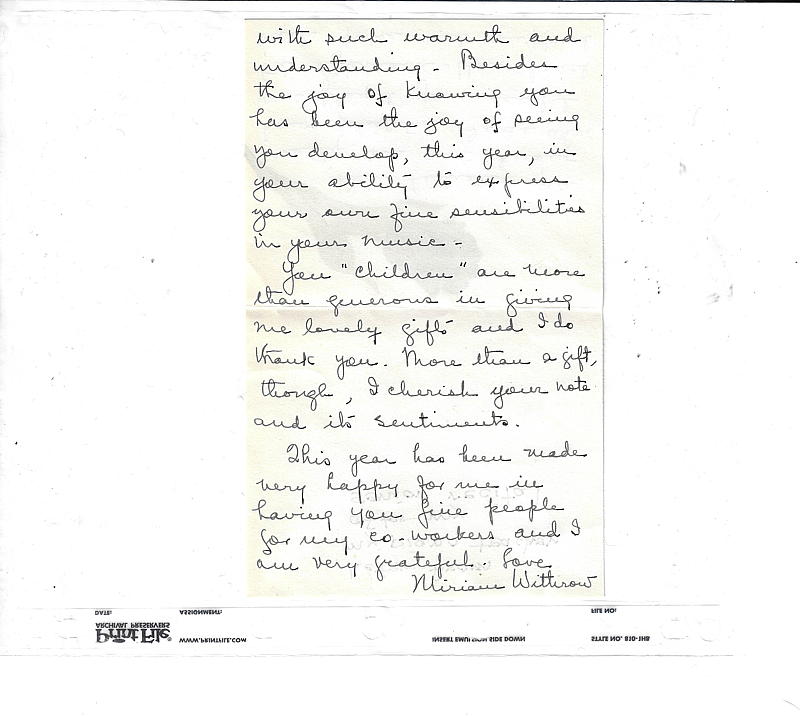 with such warmth and
understanding - Besides
the joy of knowing you
has been the joy of seeing
you develop, this year, in
your ability to express
your own fine sensibilities
in your music -
You "children" are more
than generous in giving
me lovely gifts and I do
thank you. More than a gift,
though, I cherish your note
and its sentiments.
This year has been made
very happy for me in
having you fine people
for my co-workers and I
am very grateful. Love
Miriam Withrow
DATE: ASSIGNMENT: FILE NO:
ARCHIVAL PRESERVERS
Print File® WWW.PRINTFILE.COM INSERT EMULSION SIDE DOWN STYLE NO. 810-1HB